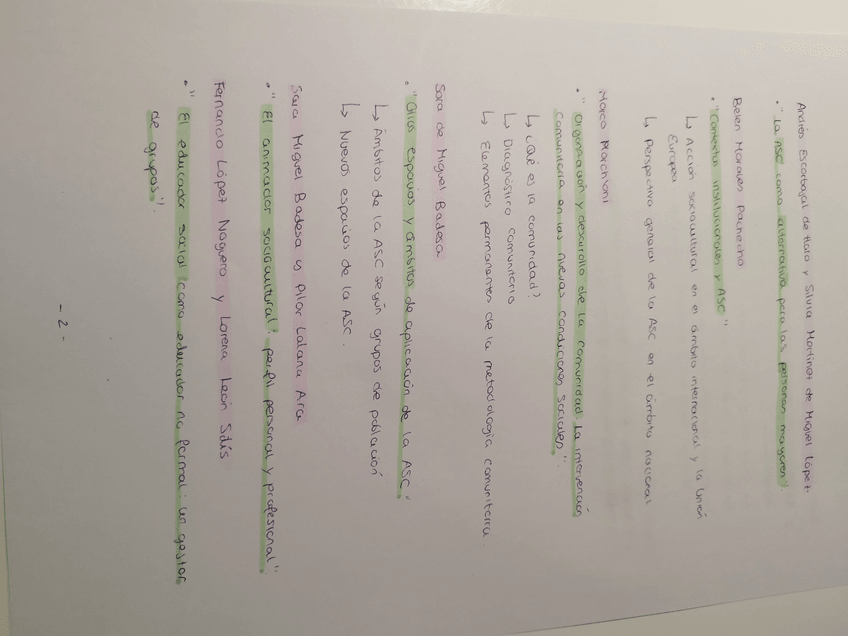 Andrés Escarbajal de Haro y Silvia Martínez de Miguel López.
• "La ASC como alternativa para las personas mayores".
Belén Morales Pachecho
• "Contextos institucionales y ASC"
↳ Acción sociocultural en el ámbito internacional y la Unión
Europea
↳ Perspectiva general de la ASC en el ámbito nacional
Marco Marchioni
• "Organización y desarollo de la comunidad. La intervención
comunitaria en las nuevas condiciones sociales".
↳ ¿Qué es la comunidad?
↳ Diagnóstico comunitario
↳ Elementos permanentes de la metodología comunitaria.
Sara de Miguel Badesa
• "Otros espacios y ámbitos de aplicación de la ASC."
↳ Ámbitos de la ASC según grupos de población
↳ Nuevos espacios de la ASC.
Sara Miguel Badesa y Pilar Latana Ara
• "El animador sociocultural: perfil personal y profesional".
Fernando López Noguero y Lorena León Sdís
• "El educador social como educador no formal: un gestor
de grupos".
- 2 -